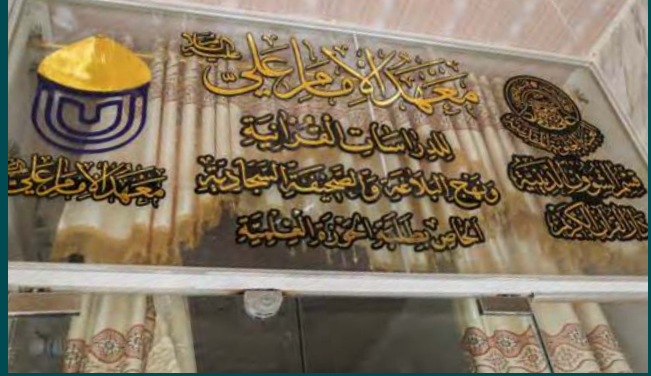 معهد الإمام علي عليه السلام
للدراسات القرآنية
ونهج البلاغة والصحيفة السجادية
الخاص بطلبة الحوزة العلمية
قسم الشؤون الدينية
دار القرآن الكريم
معهد الإمام علي